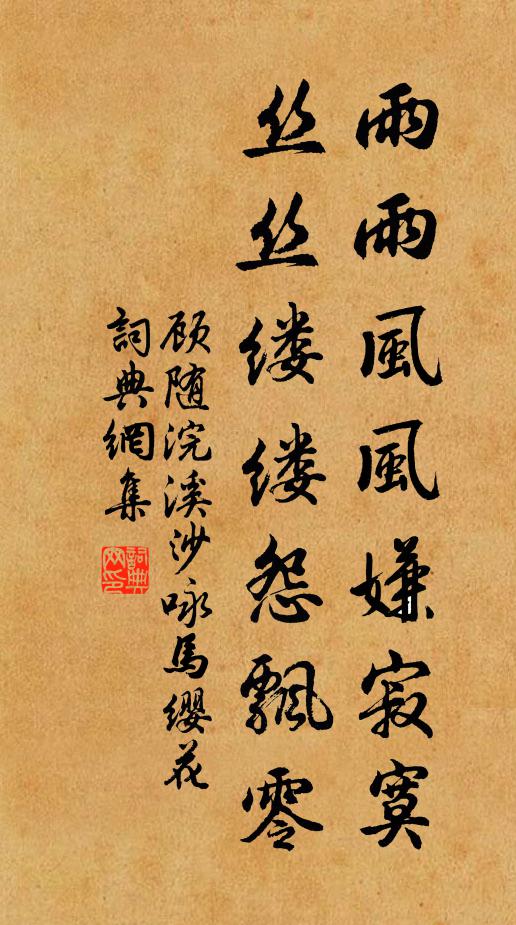 雨雨風風嫌寂寞
丝丝缕缕怨飄零
顾随浣溪沙咏馬缨花
詞典網集
詞典网印